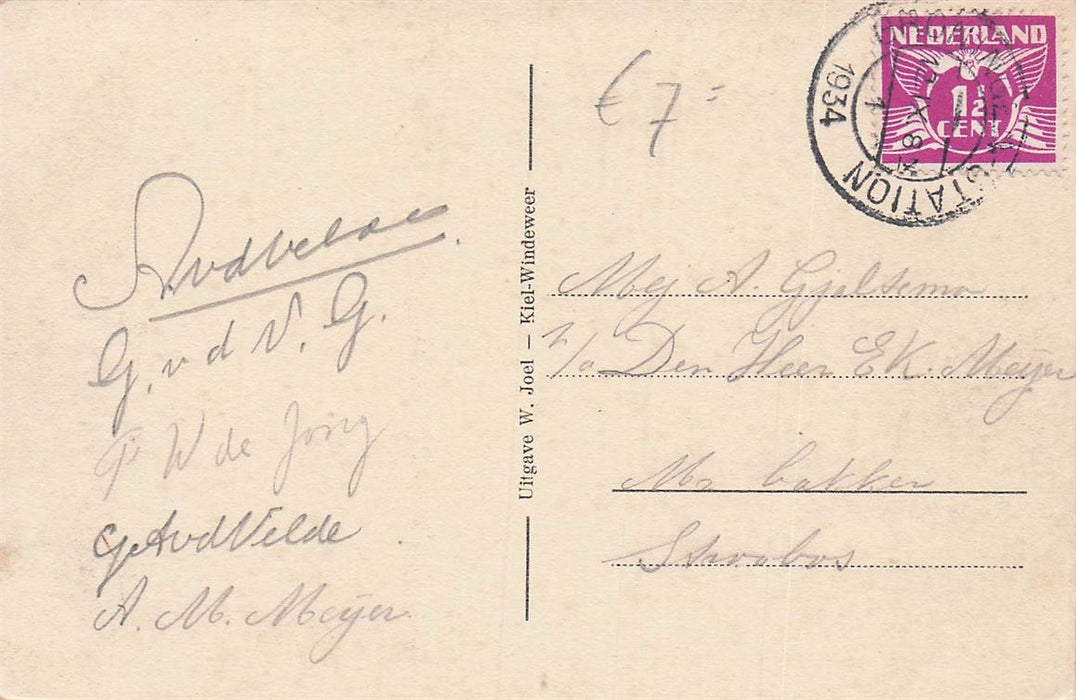 € 7=
NEDERLAND
1½
CENT
STATION
1934
Avdvelde
G. v d V. G.
P W de Jong
G A v d Velde
A. M. Meijer
Uitgave W. Joel — Kiel-Windeweer
Mej A. Gjeltsema
p/a Den Heer E K. Meyer
Mr bakker
Stroobos